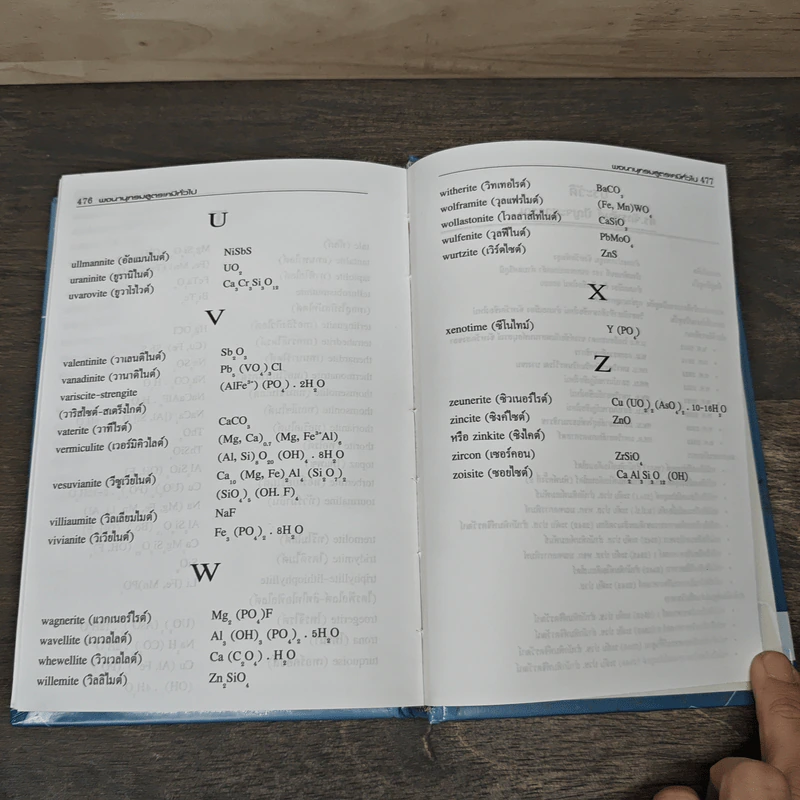 476 พจนานุกรมสูตรเคมีทั่วไป
U
ullmannite (อัลแมนไนต์) NiSbS
uraninite (ยูรานิไนต์) UO₂
uvarovite (ยูวาไรไวต์) Ca₃Cr₂Si₃O₁₂
V
valentinite (วาเลนติไนต์) Sb₂O₃
vanadinite (วานาดิไนต์) Pb₅(VO₄)₃Cl
variscite-strengite (AlFe³⁺) (PO₄) . 2H₂O
(วาริสไซต์-สเตร็งไกต์)
vaterite (วาทีไรต์) CaCO₃
vermiculite (เวอร์มิคิวไลต์) (Mg, Ca)₀.₇ (Mg, Fe³⁺Al)₆
(Al, Si)₈O₂₀ (OH)₄ . 8H₂O
vesuvianite (วีซูเวียไนต์) Ca₁₀ (Mg, Fe)₂Al₄ (Si₂O₇)₂
(SiO₄)₅ (OH. F)₄
villiaumite (วิลเลียมไมต์) NaF
vivianite (วิเวียไนต์) Fe₃ (PO₄)₂ . 8H₂O
W
wagnerite (แวกเนอร์ไรต์) Mg₂ (PO₄)F
wavellite (เวเวลไลต์) Al₃(OH)₃ (PO₄)₂ . 5H₂O
whewellite (วิวเวลไลต์) Ca (C₂O₄) . H₂O
willemite (วิลลิไมต์) Zn₂SiO₄
พจนานุกรมสูตรเคมีทั่วไป 477
witherite (วิทเทอไรต์) BaCO₃
wolframite (วุลแฟรไมต์) (Fe, Mn)WO₄
wollastonite (โวลลาสโทไนต์) CaSiO₃
wulfenite (วุลฟีไนต์) PbMoO₄
wurtzite (เวิร์ตไซต์) ZnS
X
xenotime (ซีไนไทม์) Y (PO₄)
Z
zeunerite (ซิวเนอร์ไรต์) Cu (UO₂)₂(AsO₄)₂ . 10-16H₂O
zincite (ซิงค์ไซต์) ZnO
หรือ zinkite (ซิงไคต์)
zircon (เซอร์คอน) ZrSiO₄
zoisite (ซอยไซต์) Ca₂Al₃Si₃O₁₂(OH)